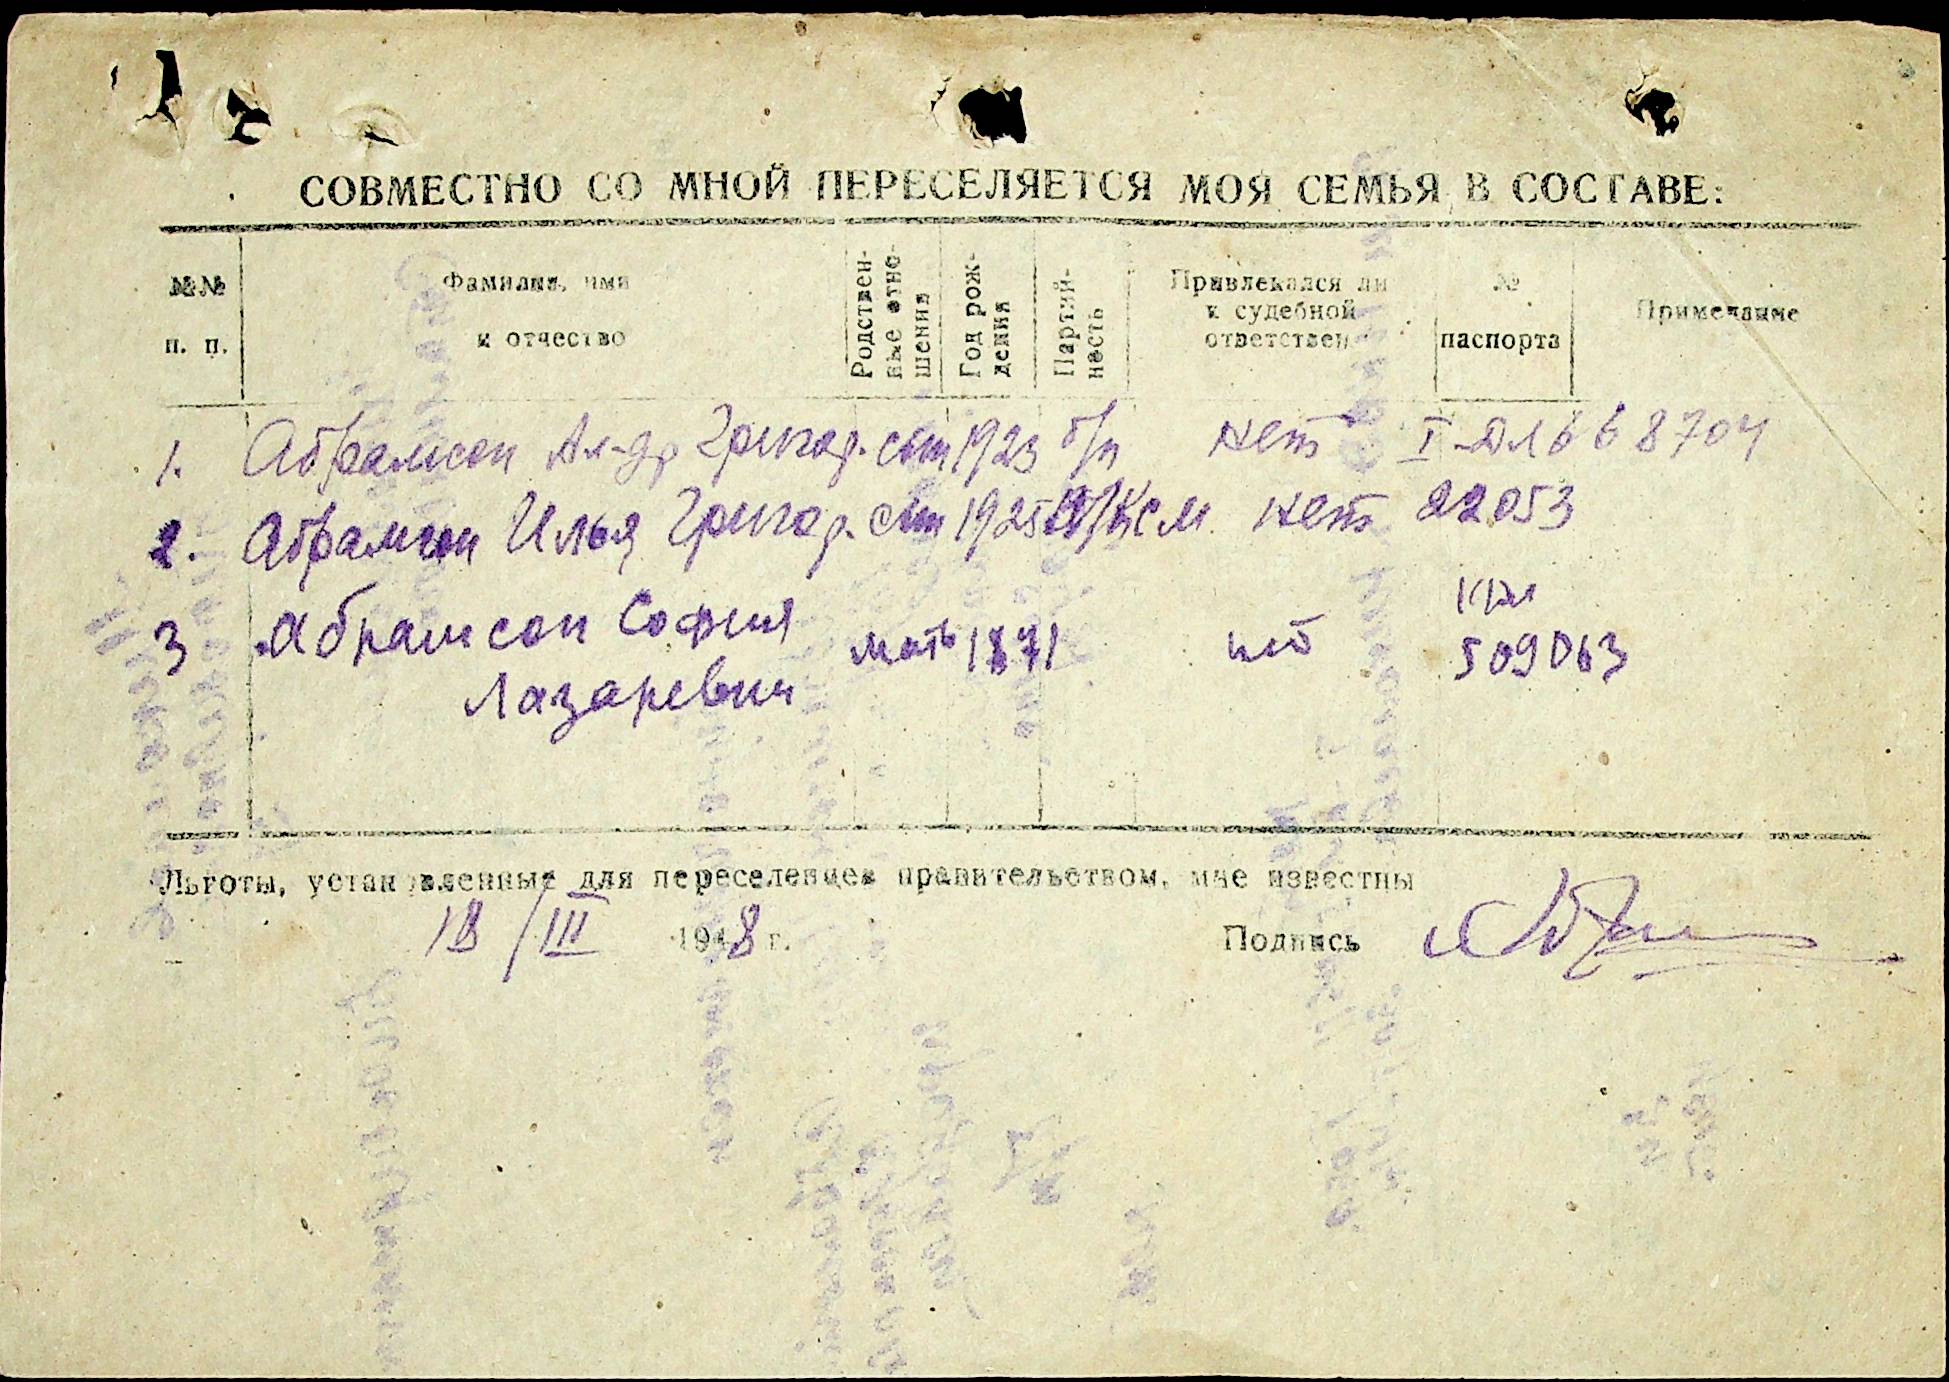 СОВМЕСТНО СО МНОЙ ПЕРЕСЕЛЯЕТСЯ МОЯ СЕМЬЯ В СОСТАВЕ:
№№ п. п. Фамилия, имя и отчество Родственные отношения Год рождения Партийность Привлекался ли к судебной ответствен. № паспорта Примечание
1. Абрамсон Ал-др Григор. сын 1923 б/п нет I-ДЛ 668704
2. Абрамсон Илья Григор. сын 1925 нет 22053
3 Абрамсон София мать 1871 509063
Лазаревич
Льготы, установленные для переселенцев правительством, мне известны
18/III 1948 г. Подпись